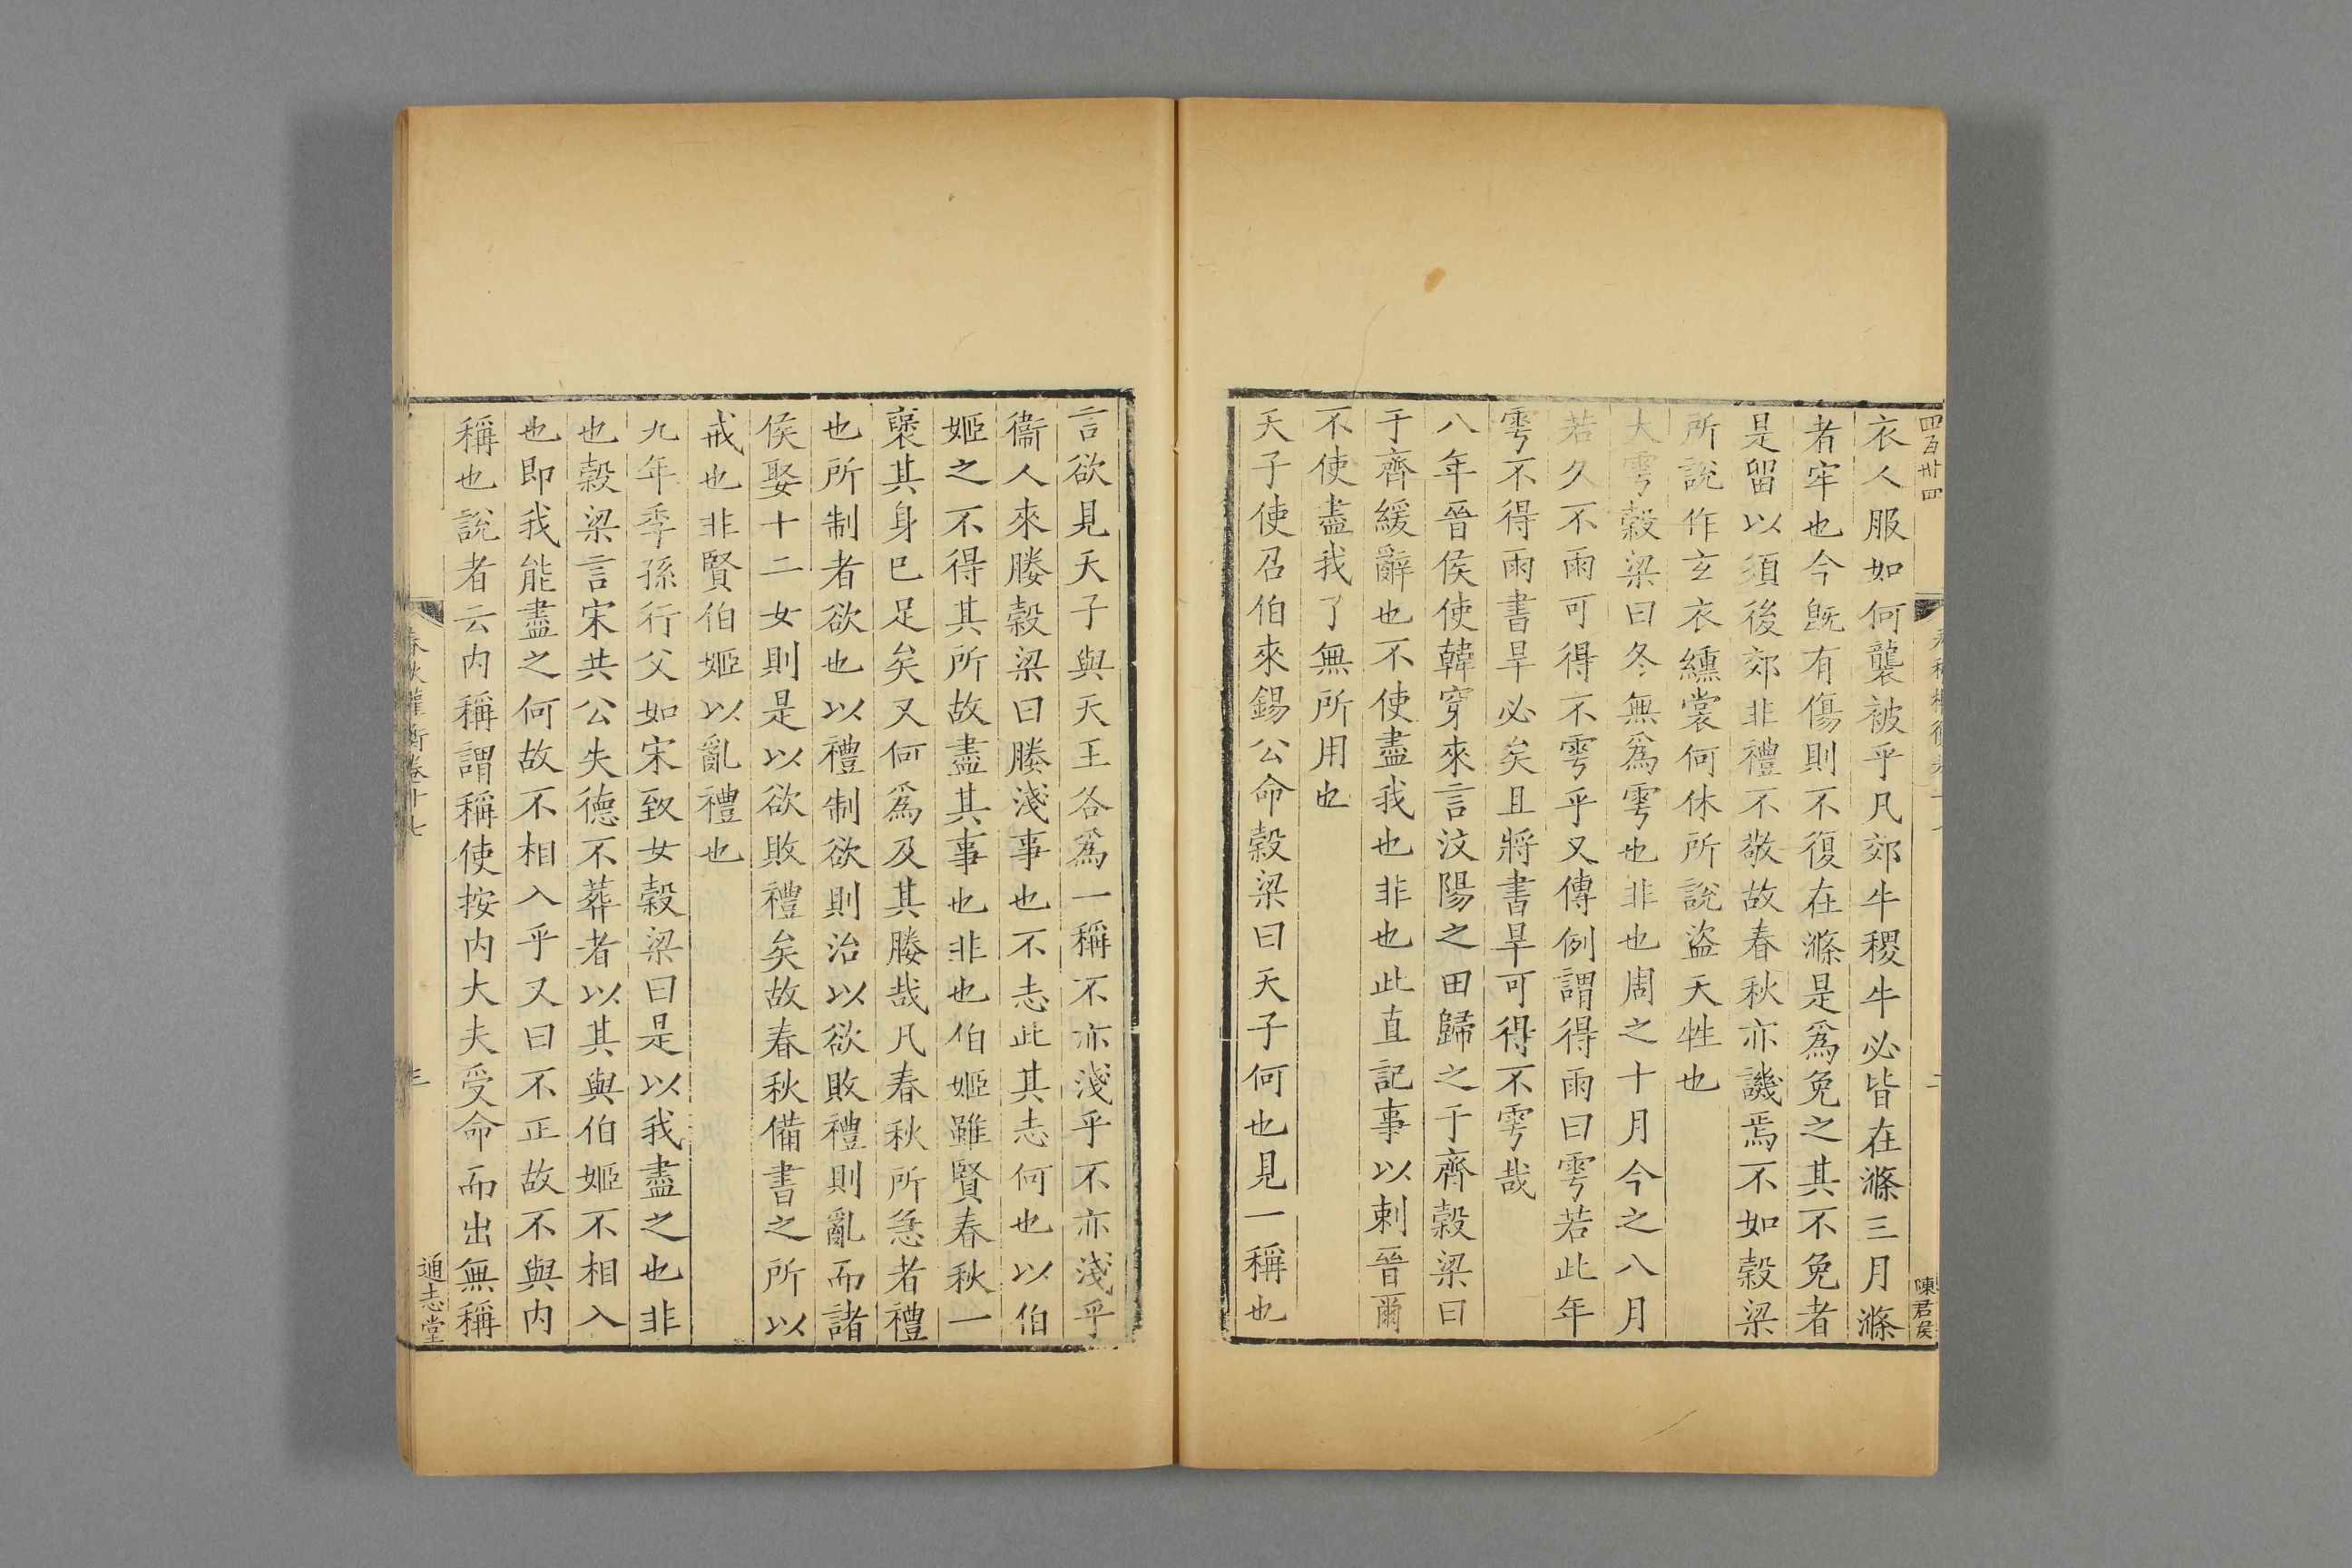 四百卅四
陳君侯
衣人服如何襲被乎凡郊牛稷牛必皆在滌三月滌
者牢也今旣有傷則不復在滌是爲免之其不免者
是留以須後郊非禮不敬故春秋亦譏焉不如穀梁
所說作玄衣纁裳何休所說盜天牲也
大雩穀梁曰冬無爲雩也非也周之十月今之八月
若久不雨可得不雩乎又傳例謂得雨曰雩若此年
雩不得雨書旱必矣且將書旱可得不雩哉
八年晉侯使韓穿來言汶陽之田歸之于齊穀梁曰
于齊緩辭也不使盡我也非也此直記事以刺晉爾
不使盡我了無所用也
天子使召伯來錫公命穀梁曰天子何也見一稱也
言欲見天子與天王各爲一稱不亦淺乎不亦淺乎
衞人來媵穀梁曰媵淺事也不志此其志何也以伯
姬之不得其所故盡其事也非也伯姬雖賢春秋一
襃其身已足矣又何爲及其媵哉凡春秋所急者禮
也所制者欲也以禮制欲則治以欲敗禮則亂而諸
侯娶十二女則是以欲敗禮矣故春秋備書之所以
戒也非賢伯姬以亂禮也
九年季孫行父如宋致女穀梁曰是以我盡之也非
也穀梁言宋共公失德不葬者以其與伯姬不相入
也即我能盡之何故不相入乎又曰不正故不與內
稱也說者云內稱謂稱使按內大夫受命而出無稱
春秋權衡卷十七
三
通志堂